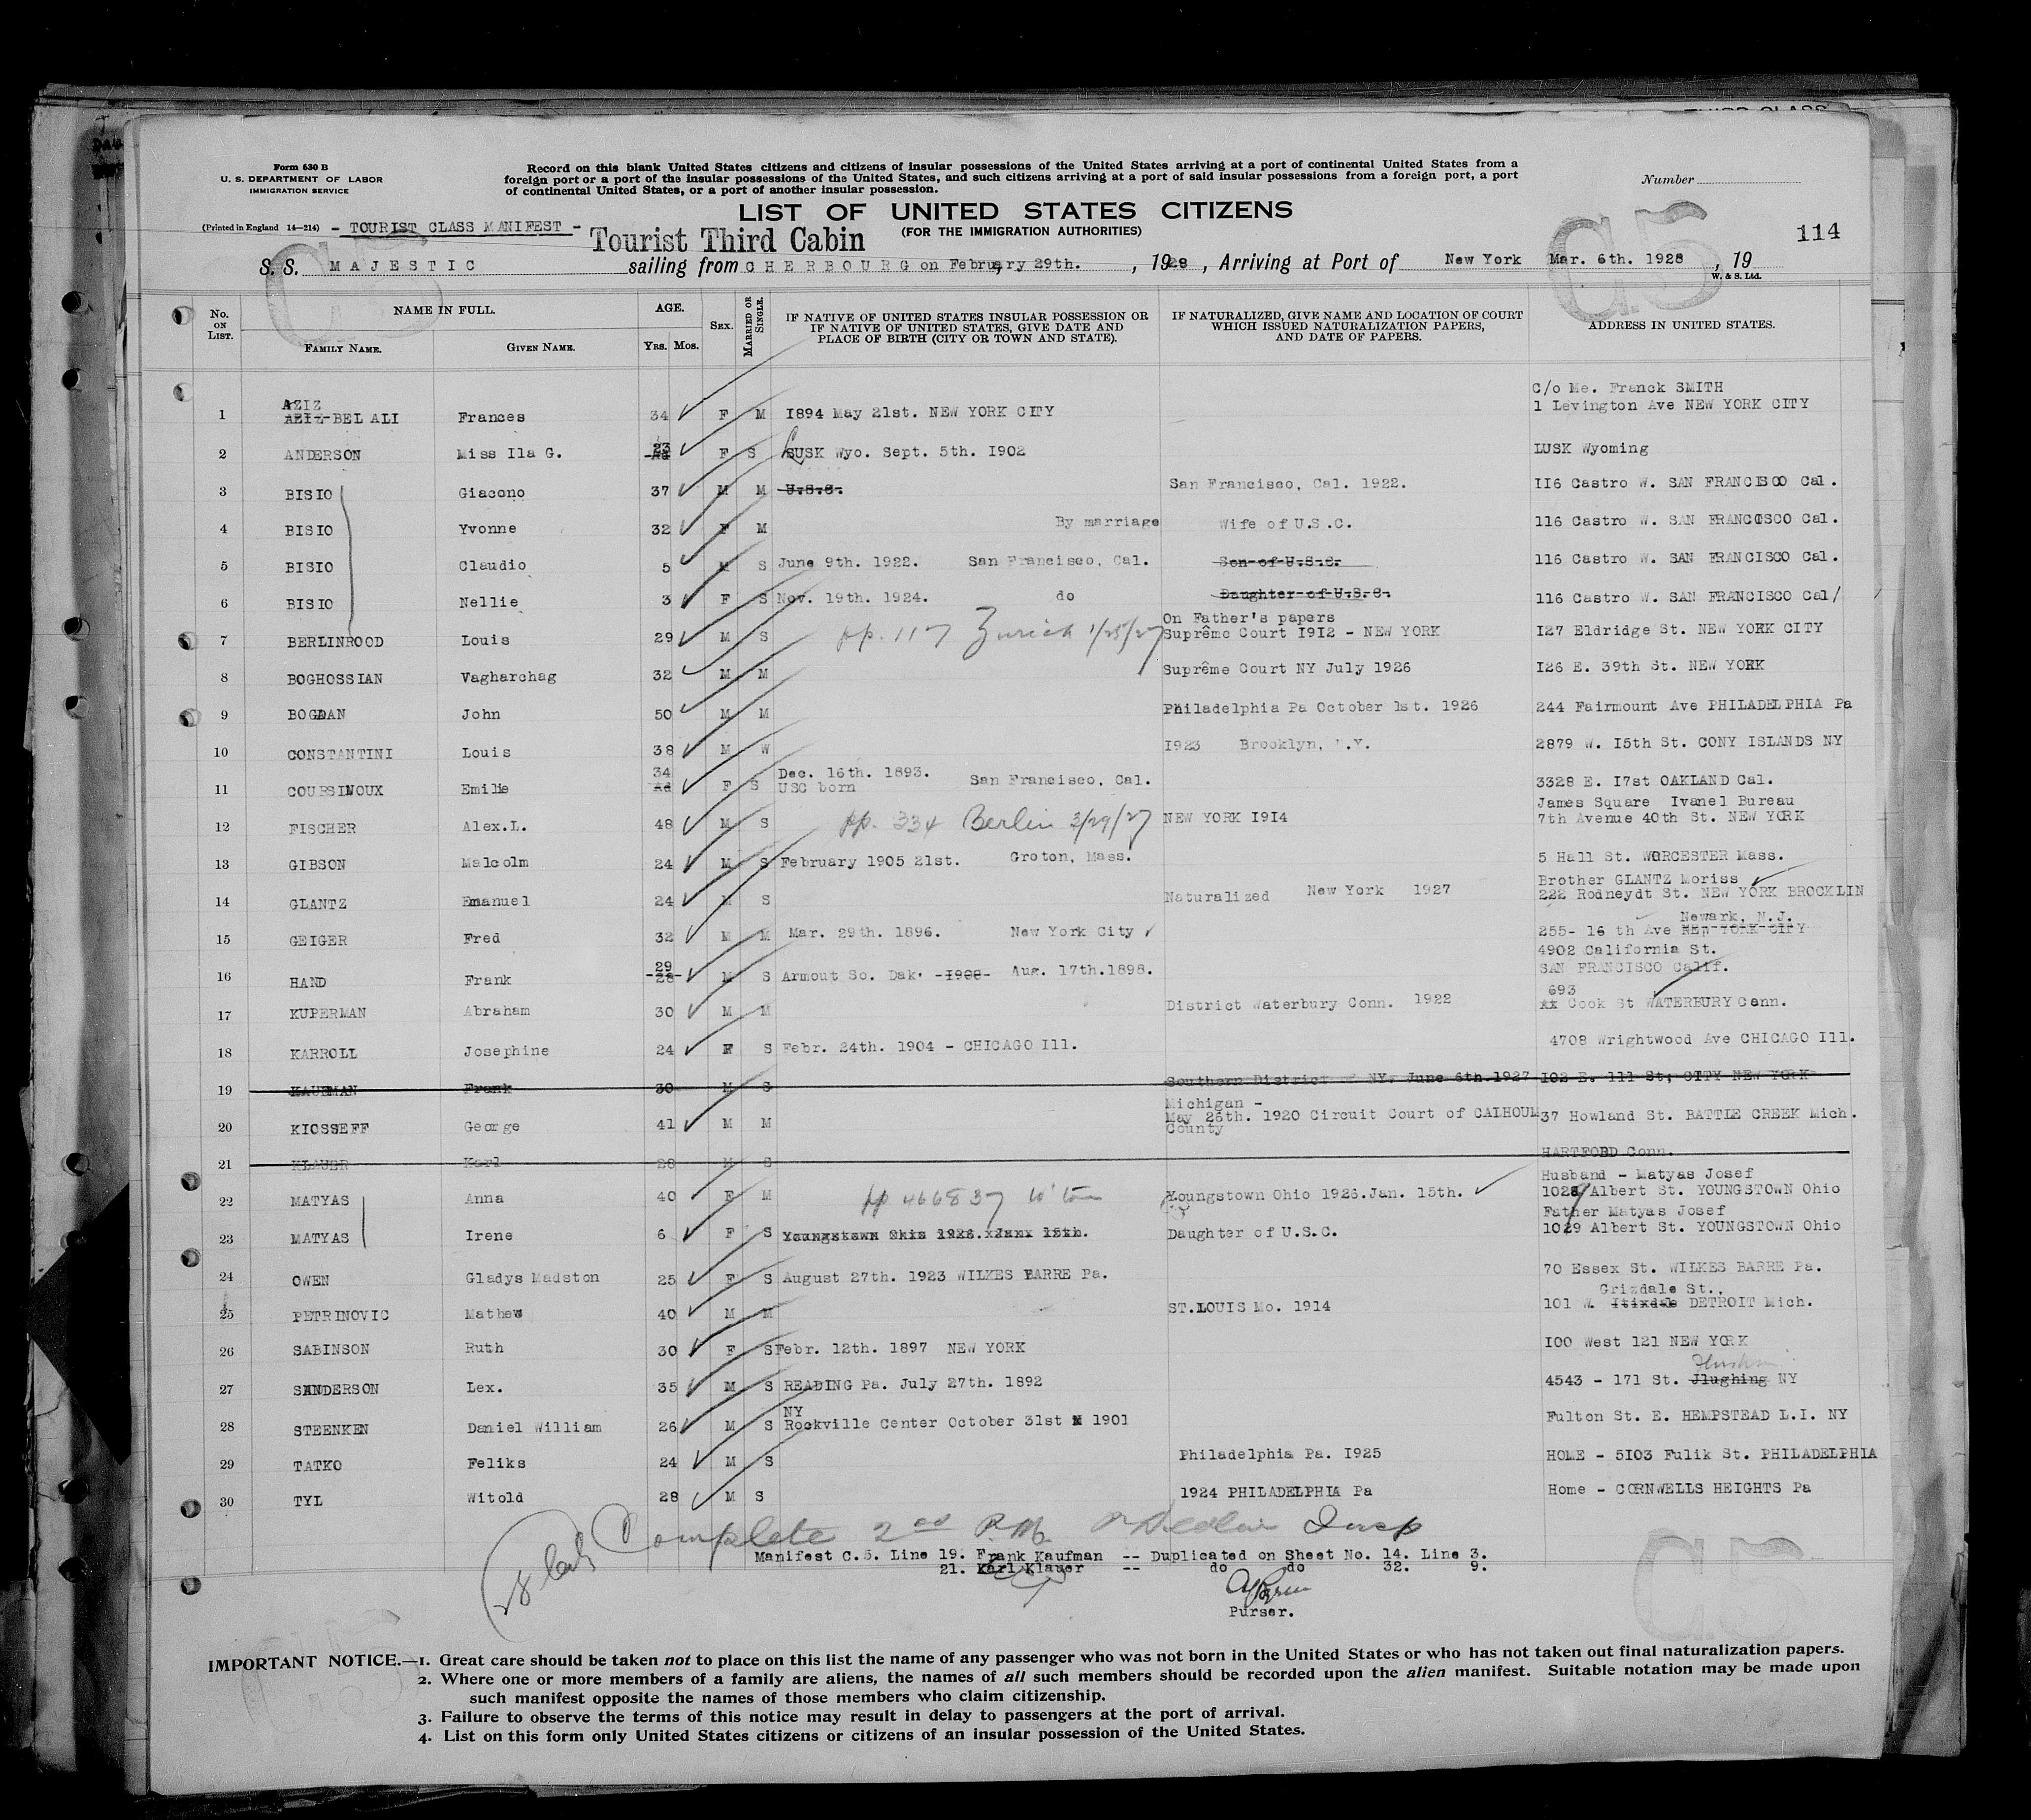 Form 630 B
U. S. DEPARTMENT OF LABOR
IMMIGRATION SERVICE
Record on this blank United States citizens and citizens of insular possessions of the United States arriving at a port of continental United States from a
foreign port or a port of the insular possessions of the United States, and such citizens arriving at a port of said insular possessions from a foreign port, a port
of continental United States, or a port of another insular possession.
Number
LIST OF UNITED STATES CITIZENS
(Printed in England 14—214) - TOURIST CLASS MANIFEST - Tourist Third Cabin (FOR THE IMMIGRATION AUTHORITIES)
C5 C5 114
S. S. MAJESTIC sailing from CHERBOURG on February 29th. , 1928 , Arriving at Port of New York Mar. 6th. 1928 , 19
W. & S. Ltd.
No. ON LIST. NAME IN FULL. AGE. SEX. MARRIED OR SINGLE. IF NATIVE OF UNITED STATES INSULAR POSSESSION OR IF NATIVE OF UNITED STATES, GIVE DATE AND PLACE OF BIRTH (CITY OR TOWN AND STATE). IF NATURALIZED, GIVE NAME AND LOCATION OF COURT WHICH ISSUED NATURALIZATION PAPERS, AND DATE OF PAPERS. ADDRESS IN UNITED STATES.
FAMILY NAME. GIVEN NAME. YRS. MOS.
C/o Me. Franck SMITH
AZIZ
1 AZIZ-BEL ALI Frances 34 F M 1894 May 21st. NEW YORK CITY 1 Levington Ave NEW YORK CITY
2 ANDERSON Miss Ila G. 23 F S LUSK Wyo. Sept. 5th. 1902 LUSK Wyoming
3 BISIO Giacono 37 M M U.S.C. San Francisco, Cal. 1922. 116 Castro W. SAN FRANCISCO Cal.
4 BISIO Yvonne 32 F M By marriage Wife of U.S.C. 116 Castro W. SAN FRANCOSCO Cal.
5 BISIO Claudio 5 M S June 9th. 1922. San Francisco, Cal. Son-of-U.S.C. 116 Castro W. SAN FRANCISCO Cal.
6 BISIO Nellie 3 F S Nov. 19th. 1924. do Daughter-of-U.S.C. 116 Castro W. SAN FRANCISCO Cal/
On Father's papers
7 BERLINROOD Louis 29 M S pp. 117 Zurich 1/25/27 Suprême Court 1912 - NEW YORK 127 Eldridge St. NEW YORK CITY
8 BOGHOSSIAN Vagharchag 32 M M Suprême Court NY July 1926 126 E. 39th St. NEW YORK
9 BOGDAN John 50 M M Philadelphia Pa October 1st. 1926 244 Fairmount Ave PHILADELPHIA Pa
10 CONSTANTINI Louis 38 M W 1923 Brooklyn, N.Y. 2879 W. 15th St. CONY ISLANDS NY
34 Dec. 16th. 1893.
11 COURSINOUX Emilie Ad F S USC born San Francisco, Cal. 3328 E. 17st OAKLAND Cal.
James Square Ivanel Bureau
12 FISCHER Alex.L. 48 M S pp. 334 Berlin 3/29/27 NEW YORK 1914 7th Avenue 40th St. NEW YORK
13 GIBSON Malcolm 24 M S February 1905 21st. Groton, Mass. 5 Hall St. WORCESTER Mass.
Brother GLANTZ Moriss
14 GLANTZ Emanuel 24 M S Naturalized New York 1927 222 Rodneydt St. NEW YORK BROCKLIN
Newark, N.J.
15 GEIGER Fred 32 M M Mar. 29th. 1896. New York City 255- 16 th Ave NEW YORK CITY
4902 California St.
29
16 HAND Frank -28- M S Armout So. Dak. -1908- Aug. 17th.1898. SAN FRANCISCO Calif.
693
17 KUPERMAN Abraham 30 M M District Waterbury Conn. 1922 xx Cook St WATERBURY Conn.
18 KARROLL Josephine 24 F S Febr. 24th. 1904 - CHICAGO Ill. 4708 Wrightwood Ave CHICAGO Ill.
19 KAUFMAN Frank 30 M S Southern District of NY. June 6th.1927 102 E. 111 St; CITY NEW YORK
Michigan -
20 KIOSSEFF George 41 M M May 25th. 1920 Circuit Court of CALHOUM 37 Howland St. BATTLE CREEK Mich.
County
21 KLAUER Karl 28 M S HARTFORD Conn.
Husband - Matyas Josef
22 MATYAS Anna 40 F M pp 466837 W'ton Youngstown Ohio 1926.Jan. 15th. 1029 Albert St. YOUNGSTOWN Ohio
Father Matyas Josef
23 MATYAS Irene 6 F S Youngstown Ohio 1926. Janx 15th. Daughter of U.S.C. 1029 Albert St. YOUNGSTOWN Ohio
24 OWEN Gladys Madston 25 F S August 27th. 1923 WILKES BARRE Pa. 70 Essex St. WILKES BARRE Pa.
Grizdale St.,
25 PETRINOVIC Mathew 40 M M ST.LOUIS Mo. 1914 101 W. DETROIT Mich.
26 SABINSON Ruth 30 F S Febr. 12th. 1897 NEW YORK 100 West 121 NEW YORK
27 SANDERSON Lex. 35 M S READING Pa. July 27th. 1892 4543 - 171 St. Jlughing NY
NY
28 STEENKEN Daniel William 26 M S Rockville Center October 31st 1901 Fulton St. E. HEMPSTEAD L.I. NY
29 TATKO Feliks 24 M S Philadelphia Pa. 1925 HOME - 5103 Fulik St. PHILADELPHIA
30 TYL Witold 28 M S 1924 PHILADELPHIA Pa Home - CORNWELLS HEIGHTS Pa
Complete 2nd Insp
Manifest C.5. Line 19. Frank Kaufman -- Duplicated on Sheet No. 14. Line 3.
21. Karl Klauer -- do do 32. 9.
Purser.
C5
IMPORTANT NOTICE.—1. Great care should be taken not to place on this list the name of any passenger who was not born in the United States or who has not taken out final naturalization papers.
2. Where one or more members of a family are aliens, the names of all such members should be recorded upon the alien manifest. Suitable notation may be made upon
such manifest opposite the names of those members who claim citizenship.
3. Failure to observe the terms of this notice may result in delay to passengers at the port of arrival.
4. List on this form only United States citizens or citizens of an insular possession of the United States.